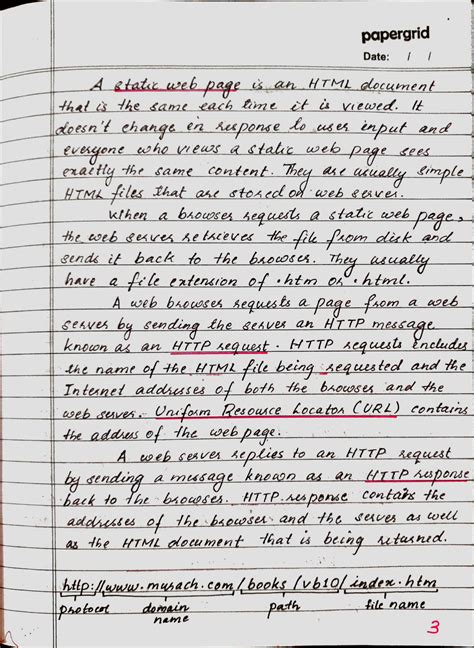 papergrid
Date: / /
A static web page is an HTML document
that is the same each time it is viewed. It
doesn't change in response to user input and
everyone who views a static web page sees
exactly the same content. They are usually simple
HTML files that are stored on web server.
When a browser requests a static web page,
the web server retrieves the file from disk and
sends it back to the browser. They usually
have a file extension of .htm or .html.
A web browser requests a page from a web
server by sending the server an HTTP message
known as an HTTP request. HTTP requests includes
the name of the HTML file being requested and the
Internet addresses of both the browser and the
web server. Uniform Resource Locator (URL) contains
the address of the web page.
A web server replies to an HTTP request
by sending a message known as an HTTP response
back to the browser. HTTP response contains the
addresses of the browser and the server as well
as the HTML document that is being returned.
http://www.murach.com/books/vb10/index.htm
protocol domain name path file name
3